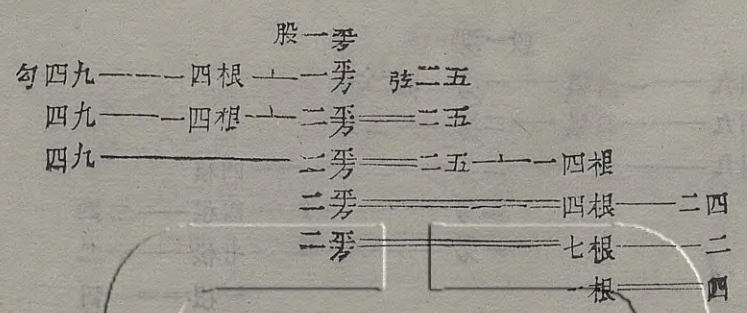 股一平方
勾四九——一四根⊥一平方 弦二五
四九——一四根⊥二平方══二五
四九——二平方══二五⊥一四根
二平方══一四根——二四
二平方══七根——二
一根══四